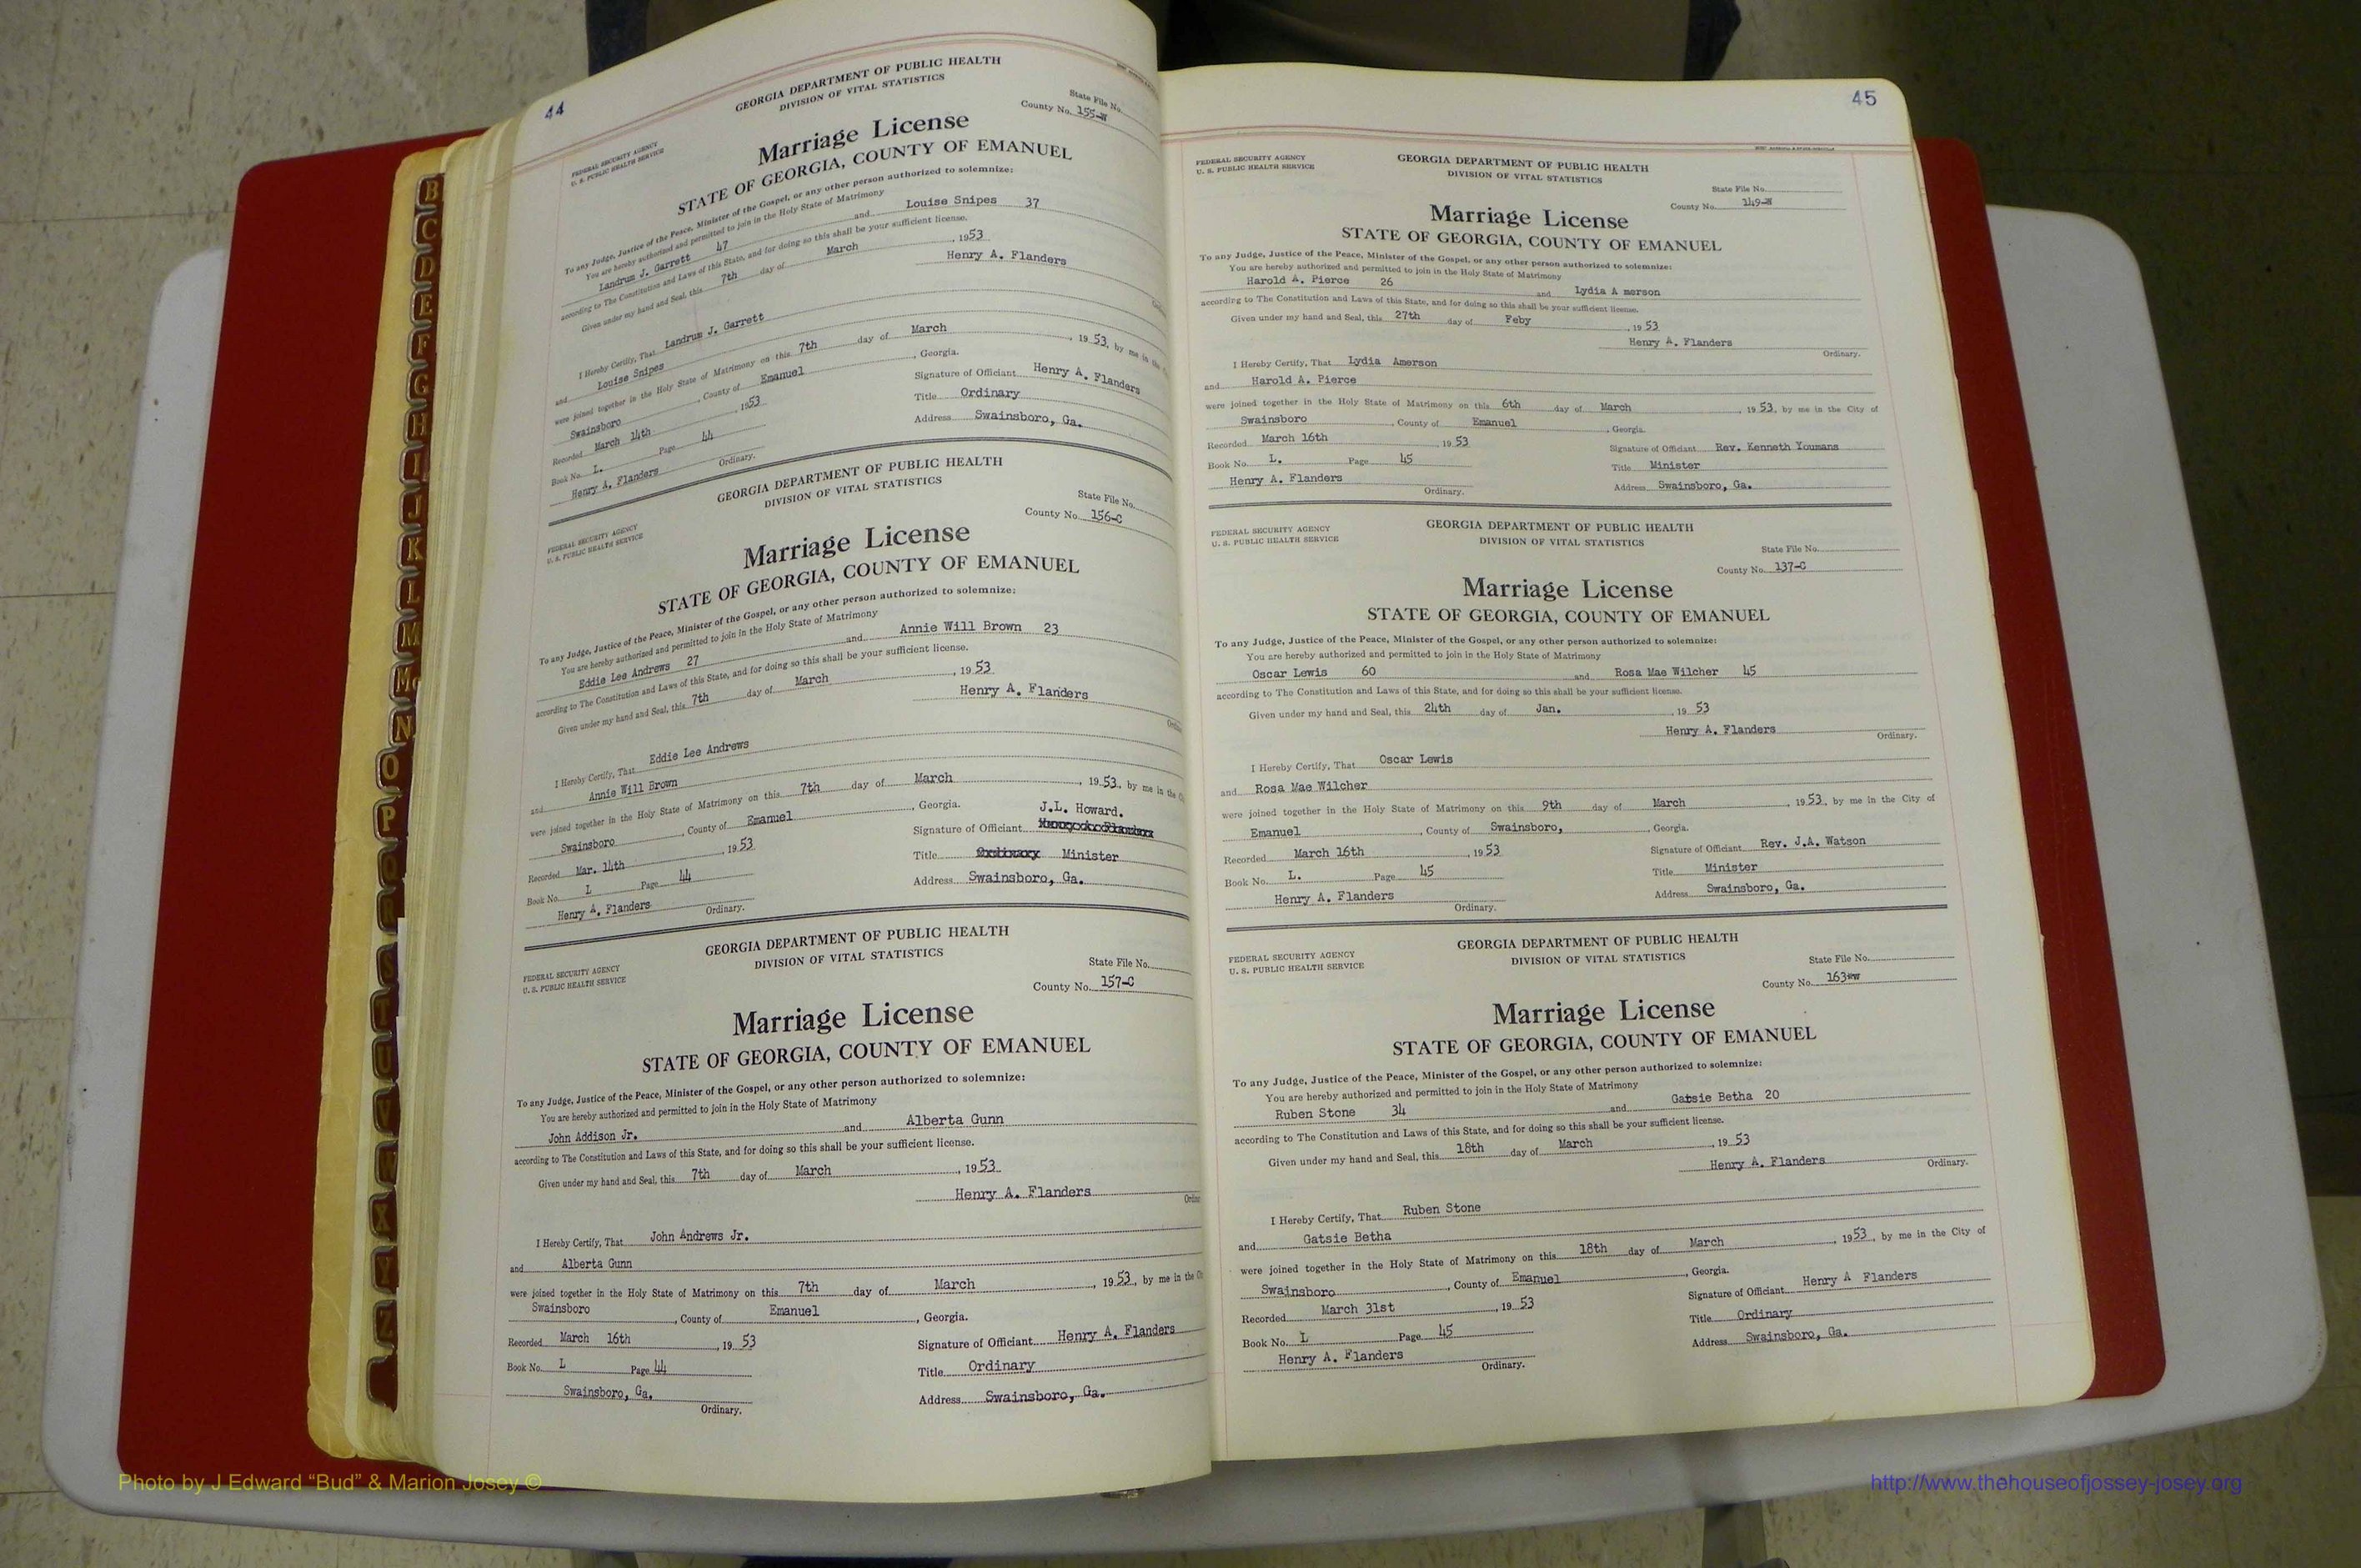 44
GEORGIA DEPARTMENT OF PUBLIC HEALTH
DIVISION OF VITAL STATISTICS
FEDERAL SECURITY AGENCY
U. S. PUBLIC HEALTH SERVICE
State File No.
County No. 155-W
Marriage License
STATE OF GEORGIA, COUNTY OF EMANUEL
To any Judge, Justice of the Peace, Minister of the Gospel, or any other person authorized to solemnize:
You are hereby authorized and permitted to join in the Holy State of Matrimony
Landrum J. Garrett 47 and Louise Snipes 37
according to The Constitution and Laws of this State, and for doing so this shall be your sufficient license.
Given under my hand and Seal, this 7th day of March, 1953
Henry A. Flanders
I Hereby Certify, That Landrum J. Garrett
and Louise Snipes
were joined together in the Holy State of Matrimony on this 7th day of March, 1953, by me in the
Swainsboro, County of Emanuel, Georgia.
Recorded March 14th, 1953
Signature of Officiant Henry A. Flanders
Book No. L. Page 44
Title Ordinary
Henry A. Flanders Ordinary.
Address Swainsboro, Ga.
GEORGIA DEPARTMENT OF PUBLIC HEALTH
DIVISION OF VITAL STATISTICS
FEDERAL SECURITY AGENCY
U. S. PUBLIC HEALTH SERVICE
State File No.
County No. 156-C
Marriage License
STATE OF GEORGIA, COUNTY OF EMANUEL
To any Judge, Justice of the Peace, Minister of the Gospel, or any other person authorized to solemnize:
You are hereby authorized and permitted to join in the Holy State of Matrimony
Eddie Lee Andrews 27 and Annie Will Brown 23
according to The Constitution and Laws of this State, and for doing so this shall be your sufficient license.
Given under my hand and Seal, this 7th day of March, 1953
Henry A. Flanders
I Hereby Certify, That Eddie Lee Andrews
and Annie Will Brown
were joined together in the Holy State of Matrimony on this 7th day of March, 1953, by me in the
Swainsboro, County of Emanuel, Georgia.
J.L. Howard.
Recorded Mar. 14th, 1953
Signature of Officiant
Book No. L Page 44
Title Minister
Henry A. Flanders Ordinary.
Address Swainsboro, Ga.
GEORGIA DEPARTMENT OF PUBLIC HEALTH
DIVISION OF VITAL STATISTICS
FEDERAL SECURITY AGENCY
U. S. PUBLIC HEALTH SERVICE
State File No.
County No. 157-C
Marriage License
STATE OF GEORGIA, COUNTY OF EMANUEL
To any Judge, Justice of the Peace, Minister of the Gospel, or any other person authorized to solemnize:
You are hereby authorized and permitted to join in the Holy State of Matrimony
John Addison Jr. and Alberta Gunn
according to The Constitution and Laws of this State, and for doing so this shall be your sufficient license.
Given under my hand and Seal, this 7th day of March, 1953
Henry A. Flanders
I Hereby Certify, That John Andrews Jr.
and Alberta Gunn
were joined together in the Holy State of Matrimony on this 7th day of March, 1953, by me in the
Swainsboro, County of Emanuel, Georgia.
Recorded March 16th, 1953
Signature of Officiant Henry A. Flanders
Book No. L Page 44
Title Ordinary
Swainsboro, Ga.
Ordinary.
Address Swainsboro, Ga.
45
FEDERAL SECURITY AGENCY
U. S. PUBLIC HEALTH SERVICE
GEORGIA DEPARTMENT OF PUBLIC HEALTH
DIVISION OF VITAL STATISTICS
State File No.
County No. 149-W
Marriage License
STATE OF GEORGIA, COUNTY OF EMANUEL
To any Judge, Justice of the Peace, Minister of the Gospel, or any other person authorized to solemnize:
You are hereby authorized and permitted to join in the Holy State of Matrimony
Harold A. Pierce 26 and Lydia A merson
according to The Constitution and Laws of this State, and for doing so this shall be your sufficient license.
Given under my hand and Seal, this 27th day of Feby, 1953
Henry A. Flanders
Ordinary.
I Hereby Certify, That Lydia Amerson
and Harold A. Pierce
were joined together in the Holy State of Matrimony on this 6th day of March, 1953, by me in the City of
Swainsboro, County of Emanuel, Georgia.
Recorded March 16th, 1953
Signature of Officiant Rev. Kenneth Youmans
Book No. L. Page 45
Title Minister
Henry A. Flanders
Ordinary.
Address Swainsboro, Ga.
FEDERAL SECURITY AGENCY
U. S. PUBLIC HEALTH SERVICE
GEORGIA DEPARTMENT OF PUBLIC HEALTH
DIVISION OF VITAL STATISTICS
State File No.
County No. 137-C
Marriage License
STATE OF GEORGIA, COUNTY OF EMANUEL
To any Judge, Justice of the Peace, Minister of the Gospel, or any other person authorized to solemnize:
You are hereby authorized and permitted to join in the Holy State of Matrimony
Oscar Lewis 60 and Rosa Mae Wilcher 45
according to The Constitution and Laws of this State, and for doing so this shall be your sufficient license.
Given under my hand and Seal, this 24th day of Jan., 1953
Henry A. Flanders
Ordinary.
I Hereby Certify, That Oscar Lewis
and Rosa Mae Wilcher
were joined together in the Holy State of Matrimony on this 9th day of March, 1953, by me in the City of
Emanuel, County of Swainsboro, Georgia.
Recorded March 16th, 1953
Signature of Officiant Rev. J.A. Watson
Book No. L. Page 45
Title Minister
Henry A. Flanders
Ordinary.
Address Swainsboro, Ga.
FEDERAL SECURITY AGENCY
U. S. PUBLIC HEALTH SERVICE
GEORGIA DEPARTMENT OF PUBLIC HEALTH
DIVISION OF VITAL STATISTICS
State File No.
County No. 163
Marriage License
STATE OF GEORGIA, COUNTY OF EMANUEL
To any Judge, Justice of the Peace, Minister of the Gospel, or any other person authorized to solemnize:
You are hereby authorized and permitted to join in the Holy State of Matrimony
Ruben Stone 34 and Gatsie Betha 20
according to The Constitution and Laws of this State, and for doing so this shall be your sufficient license.
Given under my hand and Seal, this 18th day of March, 1953
Henry A. Flanders
Ordinary.
I Hereby Certify, That Ruben Stone
and Gatsie Betha
were joined together in the Holy State of Matrimony on this 18th day of March, 1953, by me in the City of
Swainsboro, County of Emanuel, Georgia.
Recorded March 31st, 1953
Signature of Officiant Henry A Flanders
Book No. L Page 45
Title Ordinary
Henry A. Flanders
Ordinary.
Address Swainsboro, Ga.
B
C
D
E
F
G
H
I
J
K
L
M
Mc
N
O
P
U
V
X
Y
Z
Photo by J Edward “Bud” & Marion Josey ©
http://www.thehouseofjossey-josey.org